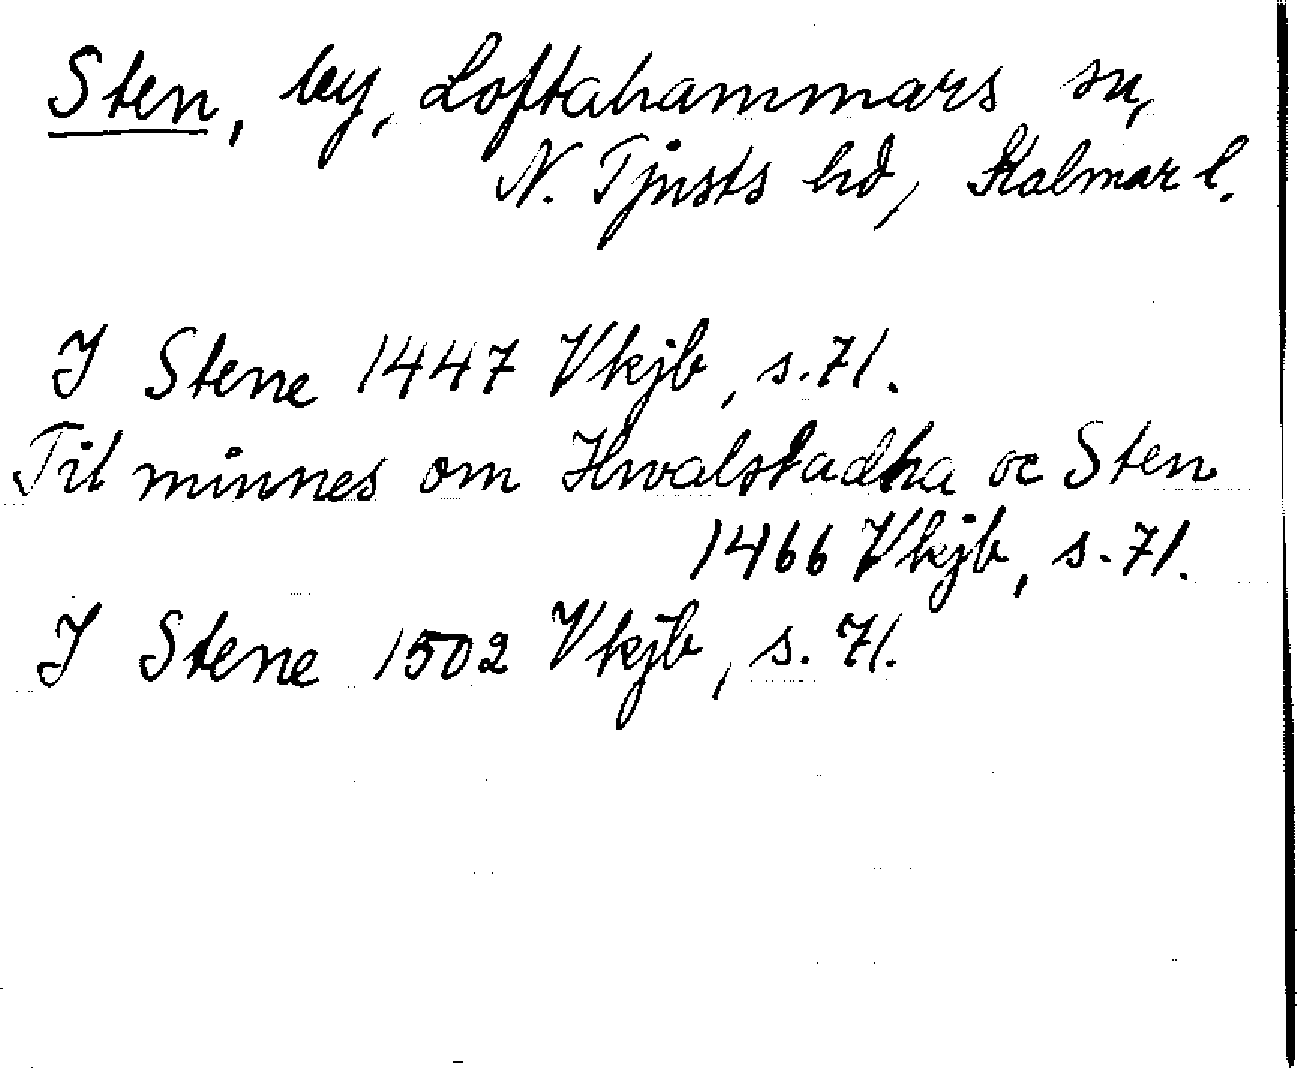 Sten, by, Loftahammars sn,
N. Tjusts hd, Kalmar l.
I Stene 1447 Vkjb, s. 71.
Til minnes om Hwalstadha oc Sten
1466 Vkjb, s. 71.
I Stene 1502 Vkjb, s. 71.